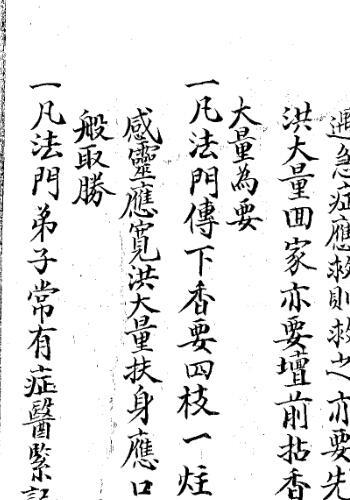 遇急症應救則救之亦要先
洪大量回家亦要壇前拈香
大量為要
一凡法門傳下香要四枝一炷
感靈應寬洪大量扶身應口
般取勝
一凡法門弟子常有症醫緊記